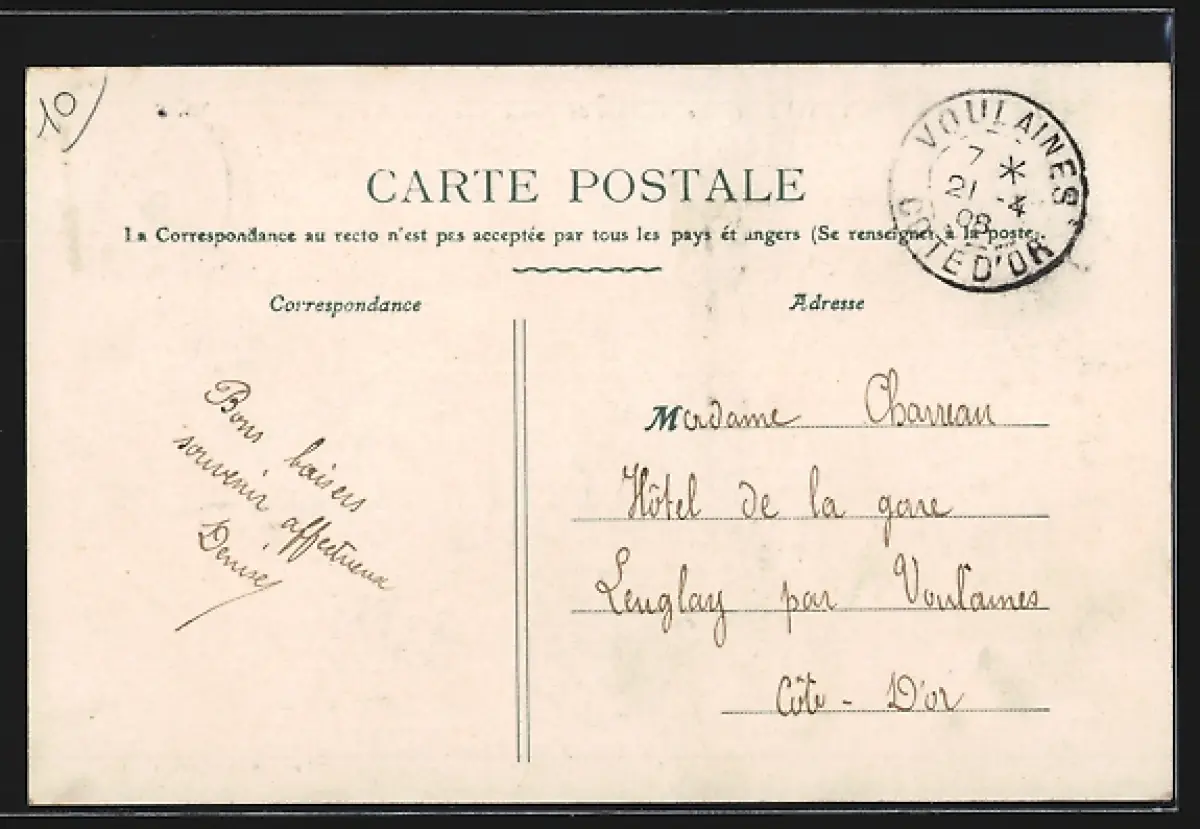 10
VOULAINES
7 *
21 -4
08
COTE D'OR
CARTE POSTALE
La Correspondance au recto n'est pas acceptée par tous les pays étrangers (Se renseigner à la poste).
Correspondance
Adresse
Bons baisers
souvenir affectueux
Denise
Madame Charreau
Hôtel de la gare
Leuglay par Voulaines
Côte - D'or